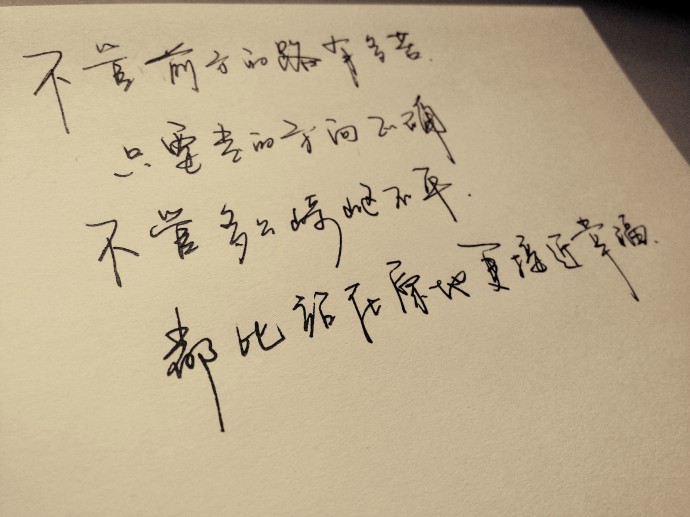 不管前方的路有多苦.
只要走的方向正确
不管多么崎岖不平.
都比站在原地更接近幸福.